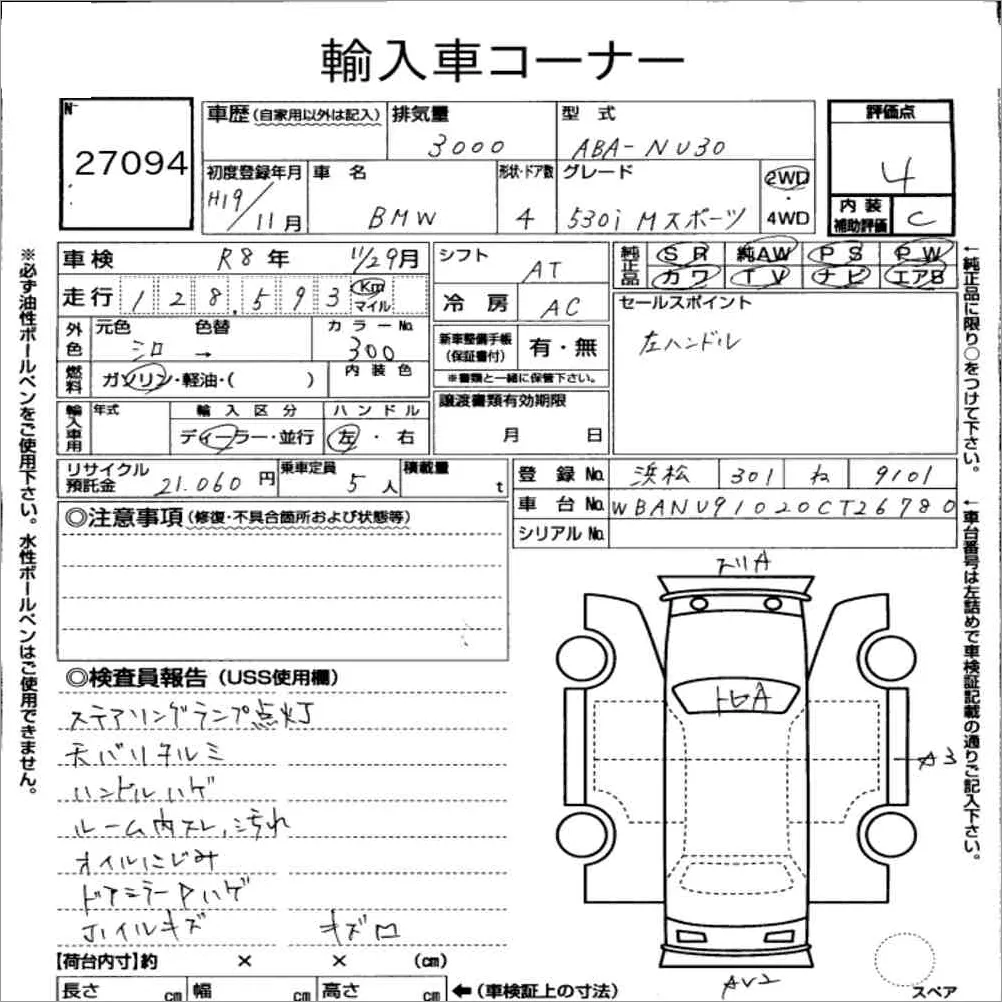 輸入車コーナー
No.
27094
車歴(自家用以外は記入)
排気量
3000
型 式
ABA-NU30
評価点
4
初度登録年月
H19/11月
車 名
BMW
形状・ドア数
4
グレード
530i Mスポーツ
2WD
・
4WD
内装
補助評価
C
車検 R8年 11/29月
走行 128,593 Km
マイル
シフト
AT
冷 房
AC
純正品
SR 純AW PS PW
カワ TV ナビ エアB
セールスポイント
左ハンドル
外色
元色 色替
シロ →
カラーNo.
300
新車整備手帳
(保証書付)
有・無
※書類と一緒に保管下さい。
燃料
ガソリン・軽油・( )
内装色
輸入車用
年式
輸入区分
ディーラー・並行
ハンドル
左・右
譲渡書類有効期限
月 日
リサイクル
預託金 21.060円
乗車定員
5人
積載量
t
登録No. 浜松 301 ね 9101
車台No. WBANU91020CT26780
シリアルNo.
◎注意事項(修復・不具合箇所および状態等)
◎検査員報告(USS使用欄)
ステアリングランプ点灯
天バリタルミ
ハンドルハゲ
ルーム内スレ,汚れ
オイルにじみ
ドアミラーPハゲ
ホイルキズ キズロ
【荷台内寸】約 × × (cm)
長さ cm 幅 cm 高さ cm ←(車検証上の寸法)
A3
AU2
スペア
※必ず油性ボールペンをご使用下さい。水性ボールペンはご使用できません。
←純正品に限り○をつけて下さい。
←車台番号は左詰めで車検証記載の通りご記入下さい。